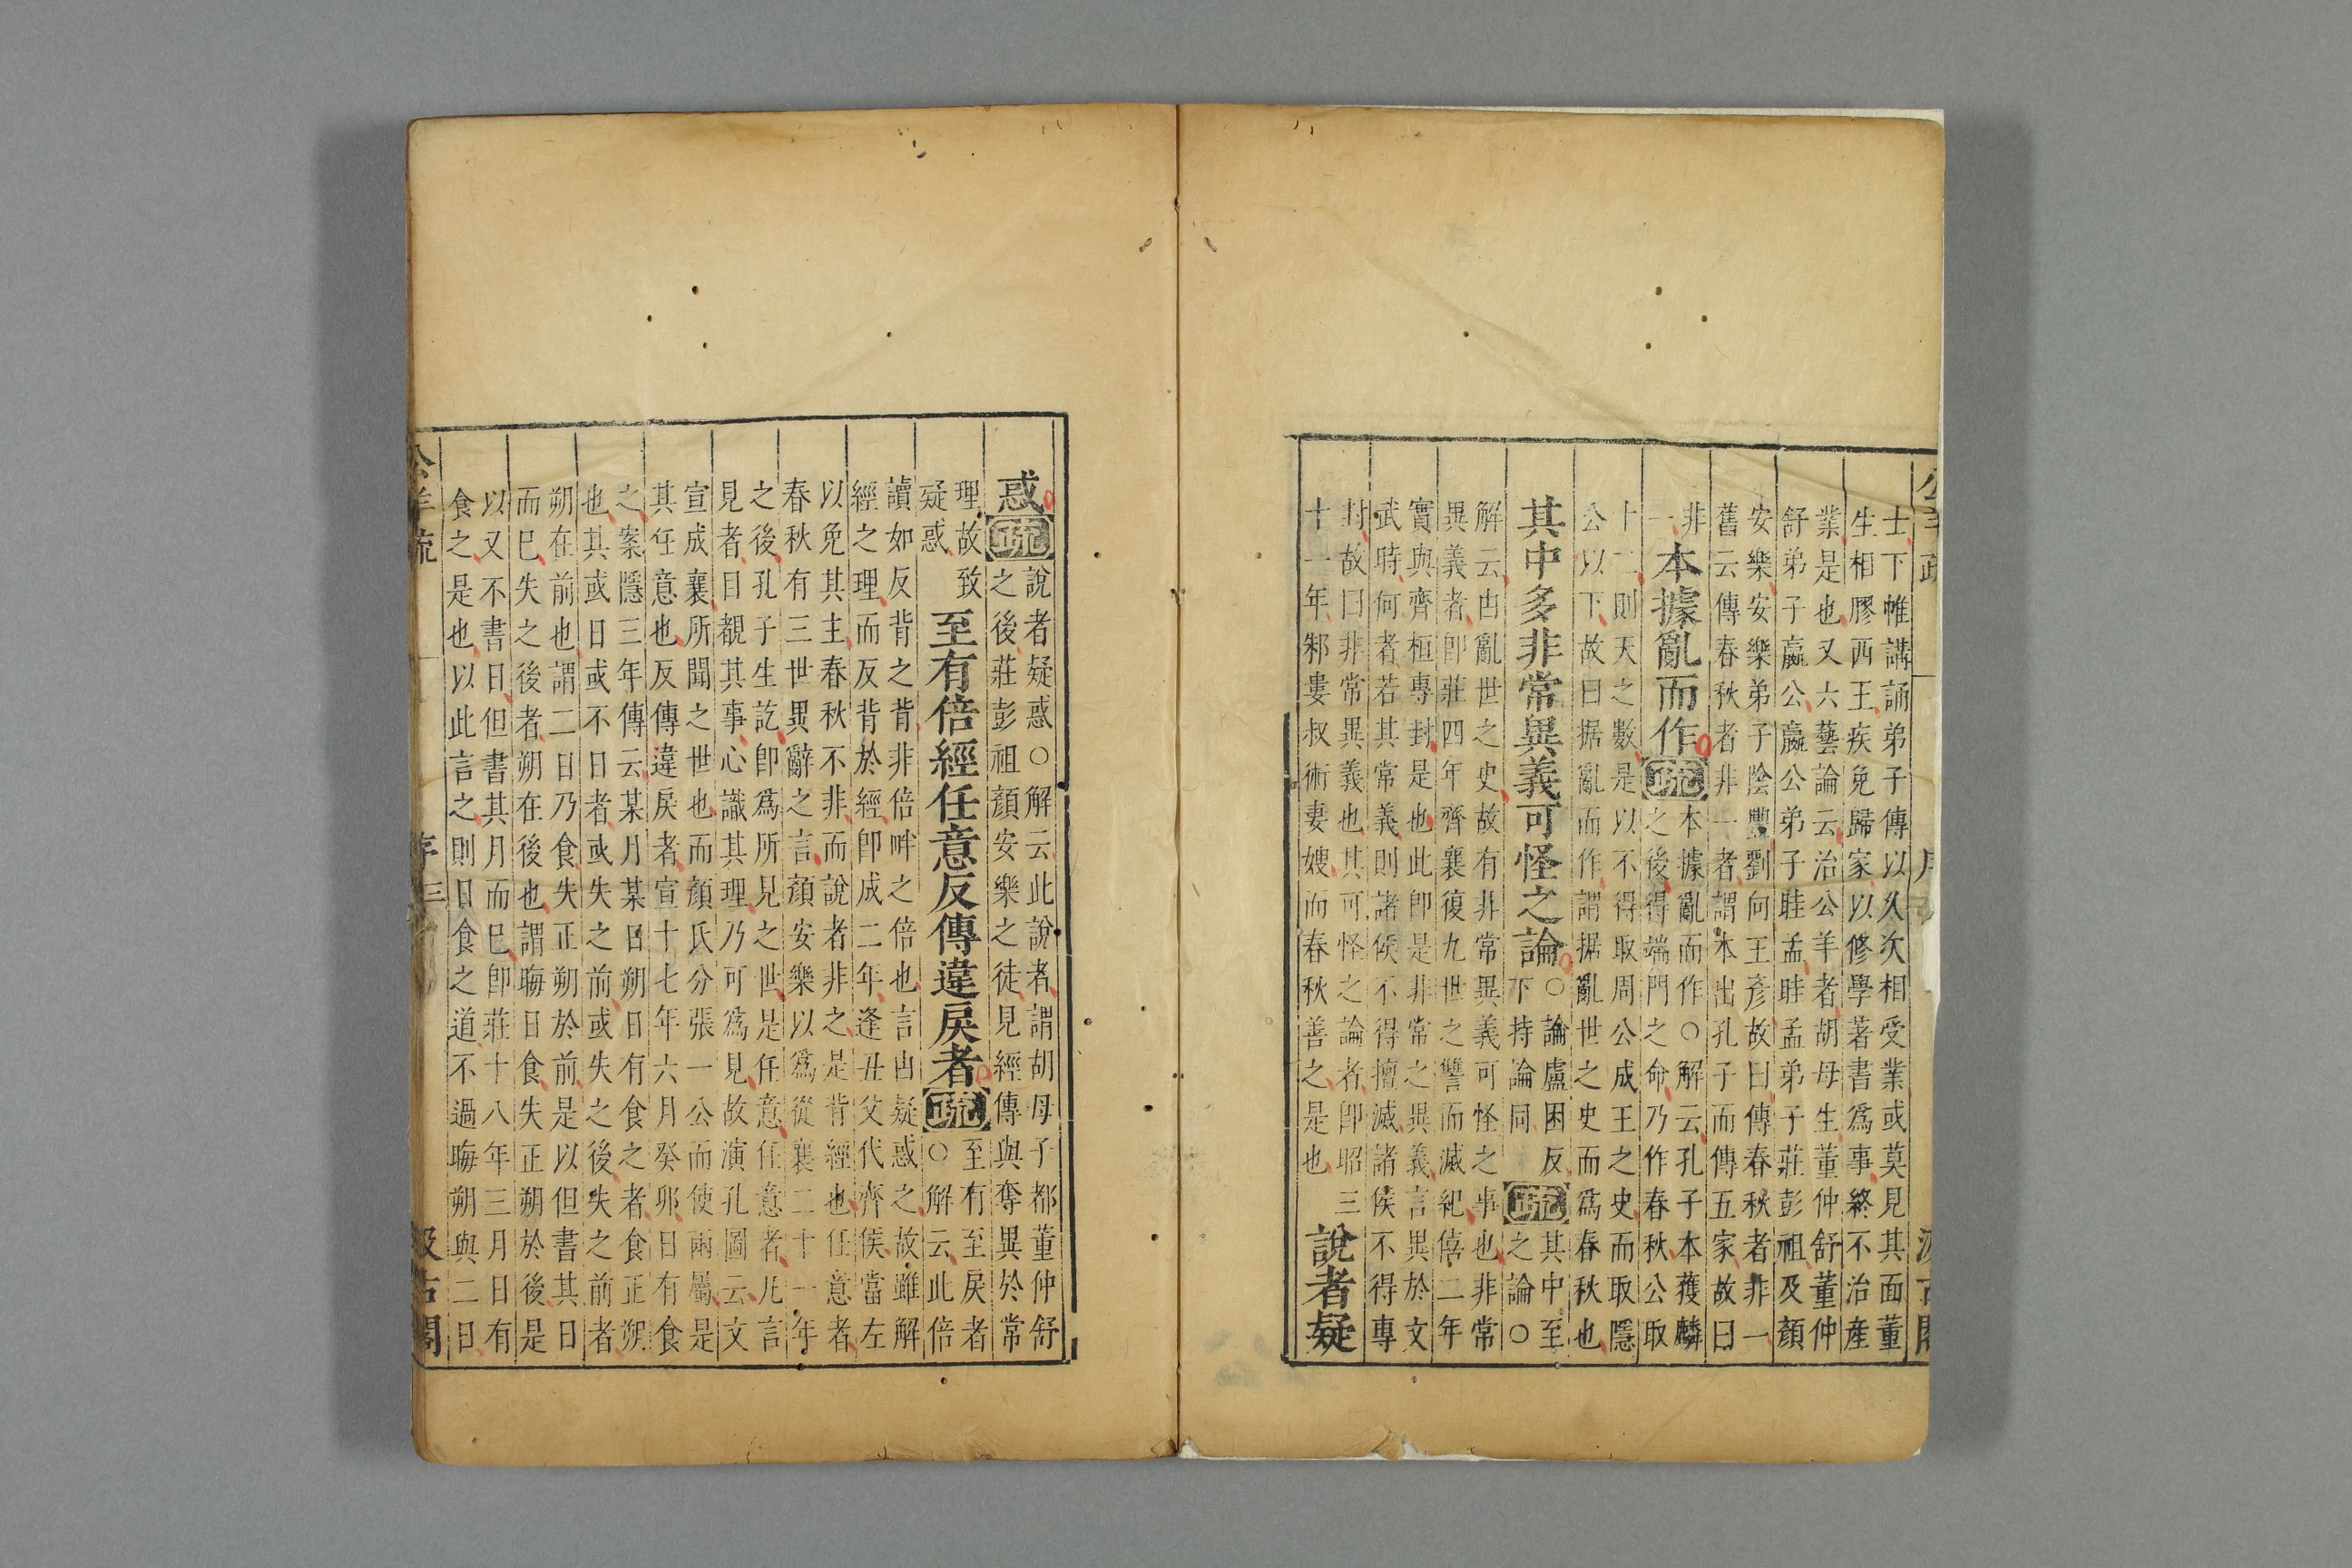 公羊疏 序 汲古閣
士下帷講誦弟子傳以久次相受業或莫見其面董
生相膠西王疾免歸家以修學著書爲事終不治產
業是也又六藝論云治公羊者胡母生董仲舒董仲
舒弟子嬴公嬴公弟子眭孟眭孟弟子莊彭祖及顏
安樂安樂弟子陰豐劉向王彥故曰傳春秋者非一
舊云傳春秋者非一者謂本出孔子而傳五家故曰
非一 本據亂而作 疏 本據亂而作○解云孔子本獲麟
之後得端門之命乃作春秋公取
十二則天之數是以不得取周公成王之史而取隱
公以下故曰据亂而作謂据亂世之史而爲春秋也
其中多非常異義可怪之論 ○論盧困反下持論同 疏 其中至之論○
解云由亂世之史故有非常異義可怪之事也非常
異義者卽莊四年齊襄復九世之讐而滅紀僖二年
實與齊桓專封是也此卽是非常之異義言異於文
武時何者若其常義則諸侯不得擅滅諸侯不得專
封故曰非常異義也其可怪之論者卽昭三
十一年邾婁叔術妻嫂而春秋善之是也 說者疑
惑 疏 說者疑惑○解云此說者謂胡母子都董仲舒
之後莊彭祖顏安樂之徒見經傳與奪異於常
理故致疑惑 至有倍經任意反傳違戾者 疏 至有至戾者○解云此倍
讀如反背之背非倍畔之倍也言由疑惑之故雖解
經之理而反背於經卽成二年逢丑父代齊侯當左
以免其主春秋不非而說者非之是背經也任意者
春秋有三世異辭之言顏安樂以爲從襄二十一年
之後孔子生訖卽爲所見之世是任意任意者凡言
見者目覩其事心識其理乃可爲見故演孔圖云文
宣成襄所聞之世也而顏氏分張一公而使兩屬是
其任意也反傳違戾者宣十七年六月癸卯日有食
之案隱三年傳云某月某日朔日有食之者食正朔
也其或日或不日者或失之前或失之後失之前者
朔在前也謂二日乃食失正朔於前是以但書其日
而巳失之後者朔在後也謂晦日食失正朔於後是
以又不書日但書其月而巳卽莊十八年三月日有
食之是也以此言之則日食之道不過晦朔與二日
公羊疏 序 三 汲古閣